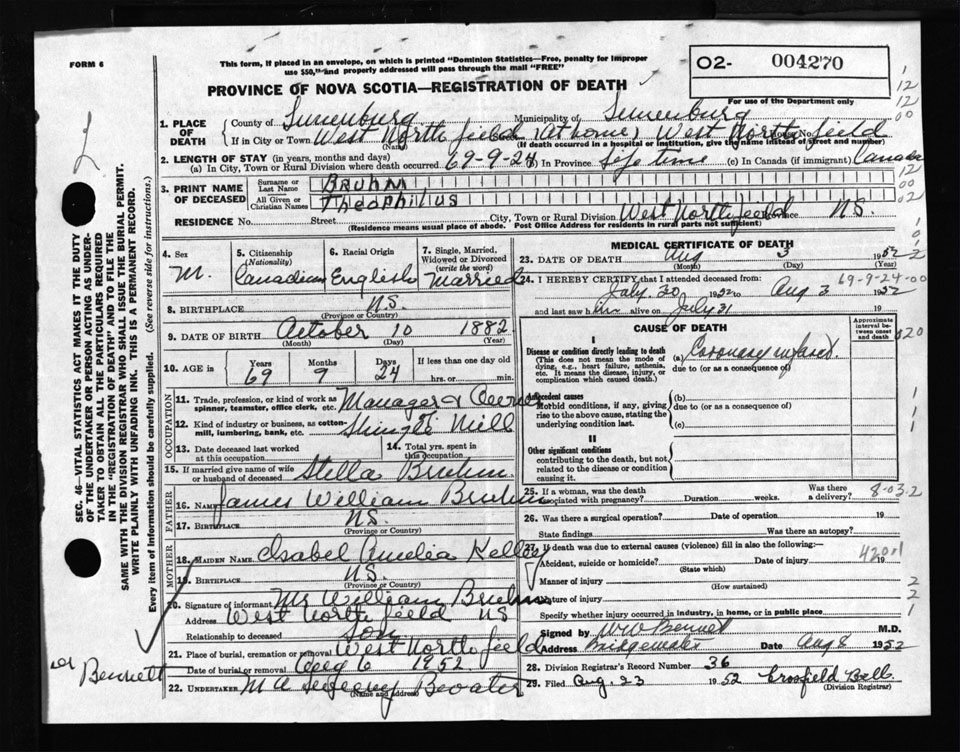 FORM 6
This form, if placed in an envelope, on which is printed "Dominion Statistics—Free, penalty for improper
use $50," and properly addressed will pass through the mail "FREE"
PROVINCE OF NOVA SCOTIA—REGISTRATION OF DEATH
O2- 004270
For use of the Department only
1. PLACE OF DEATH County of Lunenburg Municipality of Lunenburg
If in City or Town West Northfield (At home) West Northfield House No.
(Name) (If death occurred in a hospital or institution, give the name instead of street and number)
2. LENGTH OF STAY (in years, months and days)
(a) In City, Town or Rural Division where death occurred 69-9-24 (b) In Province Life time (c) In Canada (if immigrant) Canada
3. PRINT NAME OF DECEASED Surname or Last Name BRUHM
All Given or Christian Names Theophilus
RESIDENCE No. Street City, Town or Rural Division West Northfield Province N.S.
(Residence means usual place of abode. Post Office Address for residents in rural parts not sufficient)
4. Sex M.
5. Citizenship (Nationality) Canadian
6. Racial Origin English
7. Single, Married, Widowed or Divorced (write the word) Married
8. BIRTHPLACE N.S.
(Province or Country)
9. DATE OF BIRTH October 10 1882
(Month) (Day) (Year)
10. AGE in Years 69 Months 9 Days 24 If less than one day old hrs. or min.
OCCUPATION
11. Trade, profession, or kind of work as spinner, teamster, office clerk, etc. Manager & Owner
12. Kind of industry or business, as cotton-mill, lumbering, bank, etc. Shingle Mill
13. Date deceased last worked at this occupation
14. Total yrs. spent in this occupation
15. If married give name of wife or husband of deceased Stella Bruhm.
FATHER
16. Name James William Bruhm
17. BIRTHPLACE N.S.
(Province or Country)
MOTHER
18. MAIDEN NAME Isabel Amelia
19. BIRTHPLACE N.S.
(Province or Country)
20. Signature of informant Mr William Bruhm
Address West Northfield NS
Relationship to deceased Son
21. Place of burial, cremation or removal West Northfield
Date of burial or removal Aug 6 1952
22. UNDERTAKER M A
(Name and Address)
MEDICAL CERTIFICATE OF DEATH
23. DATE OF DEATH Aug 3 1952
(Month) (Day) (Year)
24. I HEREBY CERTIFY that I attended deceased from: 69-9-24-00
July 30 1952 to Aug 3 1952
and last saw him alive on July 31 19
CAUSE OF DEATH
Approximate interval between onset and death
I
Disease or condition directly leading to death (a) Coronary infarct.
(This does not mean the mode of dying, e.g., heart failure, asthenia, etc. It means the disease, injury, or complication which caused death.)
due to (or as a consequence of)
Antecedent causes (b)
Morbid conditions, if any, giving rise to the above cause, stating the underlying condition last.
due to (or as a consequence of)
(c)
II
Other significant conditions
contributing to the death, but not related to the disease or condition causing it.
25. If a woman, was the death associated with pregnancy? Duration weeks. Was there a delivery? 8-03-2
26. Was there a surgical operation? Date of operation 19
State findings Was there an autopsy?
27. If death was due to external causes (violence) fill in also the following:—
Accident, suicide or homicide? Date of injury 19
(State which)
4201
Manner of injury
(How sustained)
Nature of injury
Specify whether injury occurred in industry, in home, or in public place
Signed by W W Bennett M.D.
Address Bridgewater Date Aug 8 1952
28. Division Registrar's Record Number 36
29. Filed Aug. 23 1952 Crossfield Bell
(Division Registrar)
SEC. 46—VITAL STATISTICS ACT MAKES IT THE DUTY
OF THE UNDERTAKER OR PERSON ACTING AS UNDER-
TAKER TO OBTAIN ALL THE PARTICULARS REQUIRED
IN THE "REGISTRATION OF DEATH" AND TO FILE THE
SAME WITH THE DIVISION REGISTRAR WHO SHALL ISSUE THE BURIAL PERMIT.
WRITE PLAINLY WITH UNFADING INK. THIS IS A PERMANENT RECORD.
Every item of Information should be carefully supplied. (See reverse side for instructions.)
Bennett